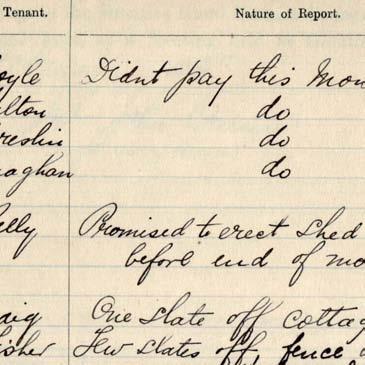 Tenant. Nature of Report.
oyle Didnt pay this Mon
lton do
reslin do
naghan do
elly Promised to erect shed
before end of mo
aig One slate off cottag
isher Few slates off, fence